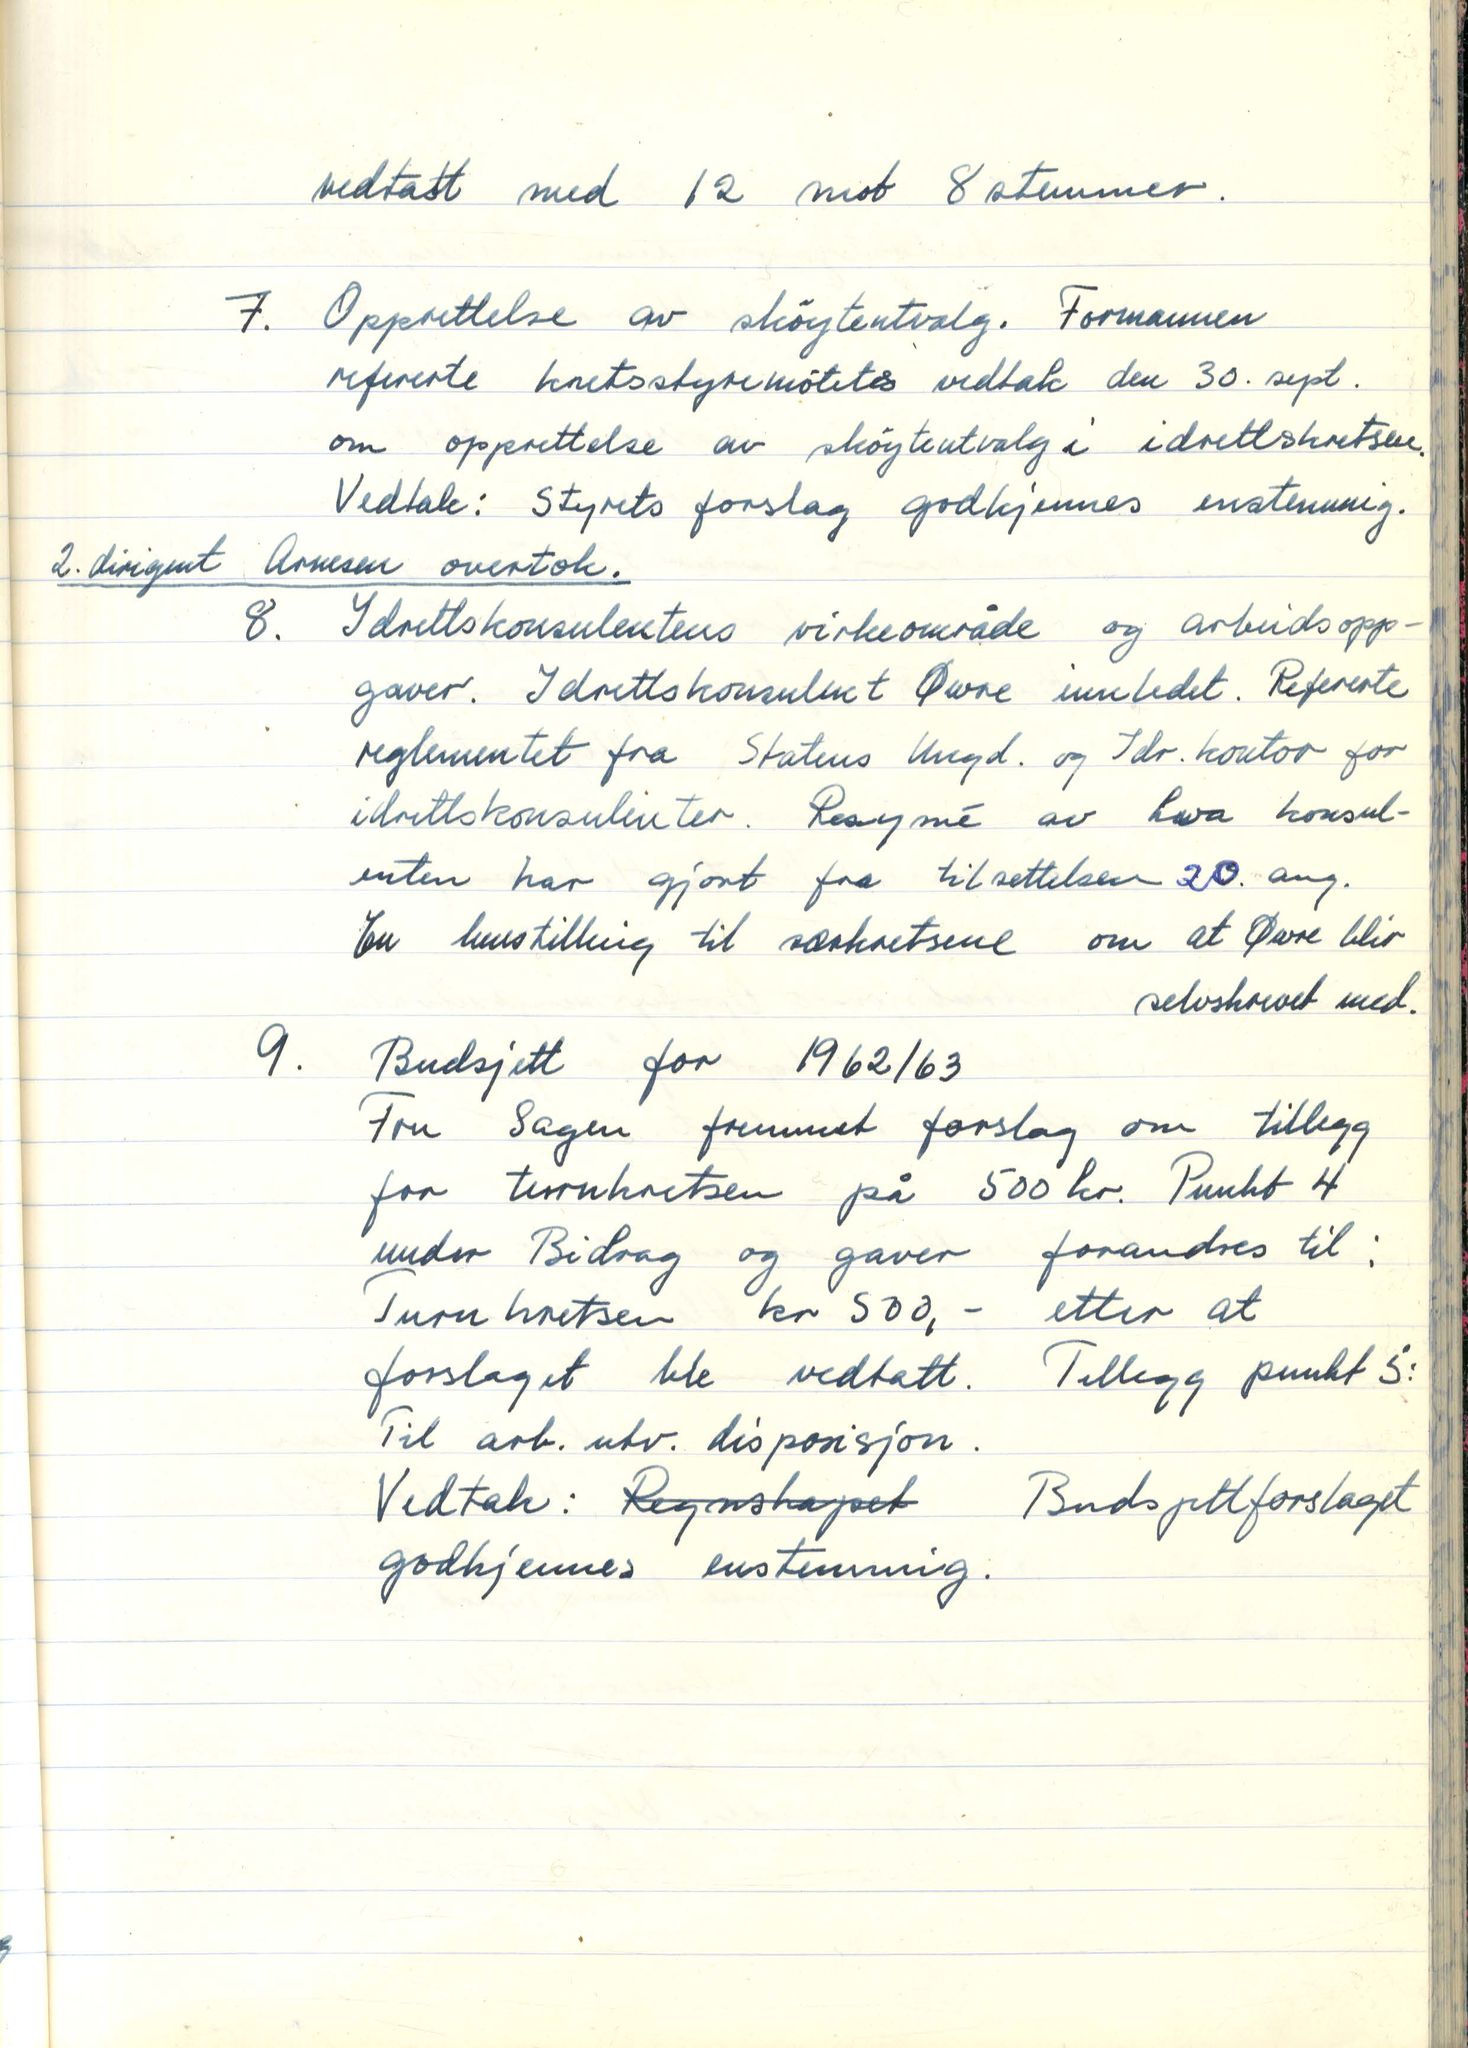 vedtatt med 12 mot 8 stemmer.
7. Opprettelse av skøytentvalg. Formannen
refererte kretsstyremøtets vedtak den 30. sept.
om opprettelse av skøyteutvalg i idrettskretsen.
Vedtak: Styrets forslag godkjennes enstemmig.
2. dirigent Arnesen overtok.
8. Idrettskonsulentens virkeområde og arbeidsopp-
gaver. Idrettskonsulent Øvre innledet. Refererte
reglementet fra Statens Ungd. og Idr. kontor for
idrettskonsulenter. Resymé av hva konsul-
enten har gjort fra tilsettelsen 20. aug.
En henstilling til særkretsene om at Øvre blir
selvskrevet med.
9. Budsjett for 1962/63
Fru Sagen fremmet forslag om tillegg
for turnkretsen på 500 kr. Punkt 4
under Bidrag og gaver forandres til:
Turnkretsen kr 500,- etter at
forslaget ble vedtatt. Tillegg punkt 5:
Til arb. utv. disposisjon.
Vedtak: Regnskapet Budsjettforslaget
godkjennes enstemmig.